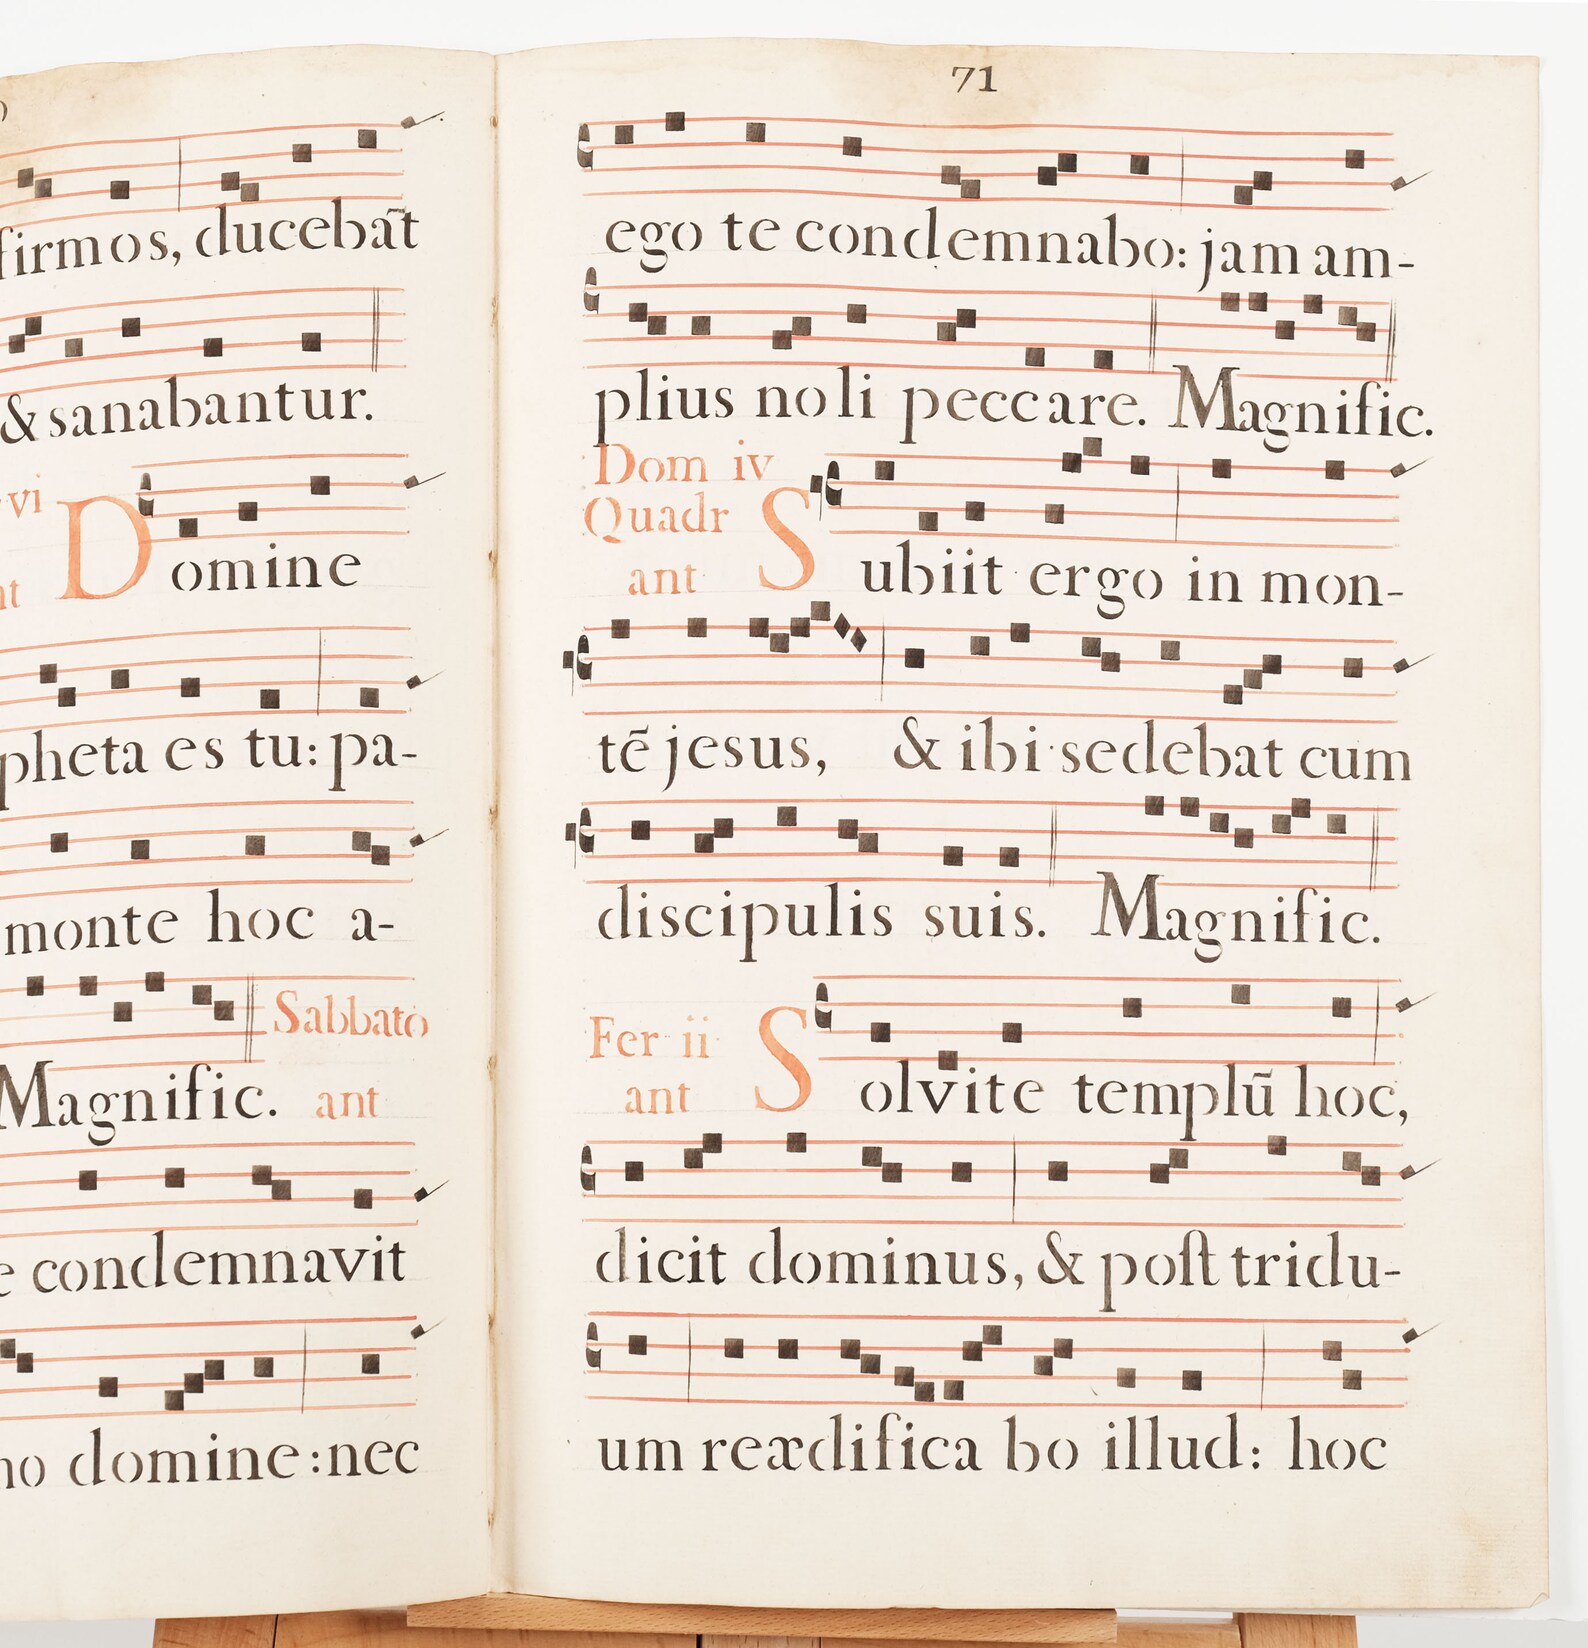 firmos, ducebãt
& sanabantur.
vi
Domine
pheta es tu: pa-
monte hoc a-
Sabbato
Magnific. ant
condemnavit
domine: nec
71
ego te condemnabo: jam am-
plius noli peccare. Magnific.
Dom iv
Quadr
ant Subiit ergo in mon-
tẽ jesus, & ibi sedebat cum
discipulis suis. Magnific.
Fer ii
ant Solvite templũ hoc,
dicit dominus, & poſt tridu-
um reædifica bo illud: hoc